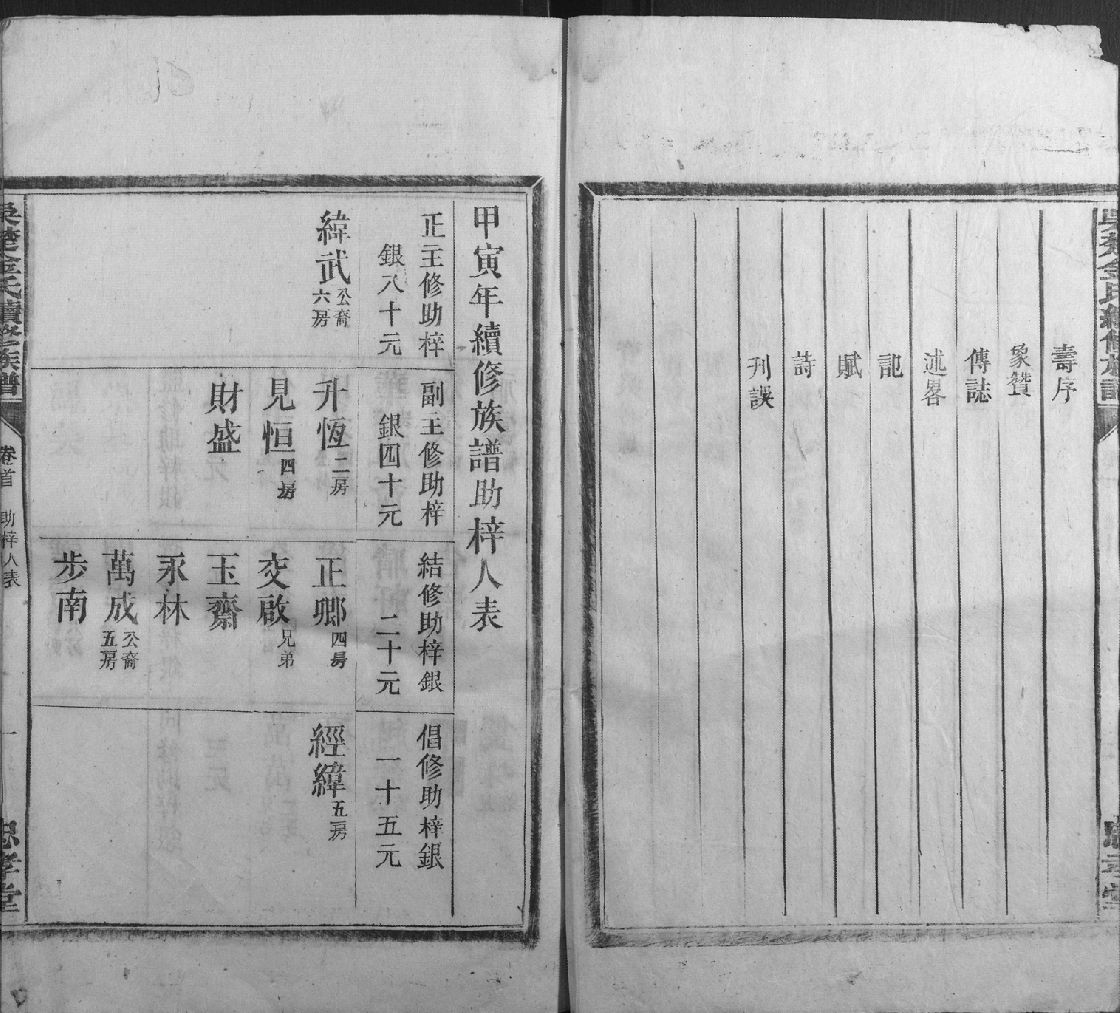 壽序
象贊
傳誌
述畧
記
賦
詩
刊誤
甲寅年續修族譜助梓人表
正主修助梓
銀八十元
緯武公裔六房
副主修助梓
銀四十元
升恆二房
見恒四房
財盛
結修助梓銀
二十元
正卿四房
交啟兄弟
玉齋
永林
萬成公裔五房
步南
倡修助梓銀
一十五元
經緯五房
吳楚金氏續修族譜
卷首
助梓人表
一
忠孝堂